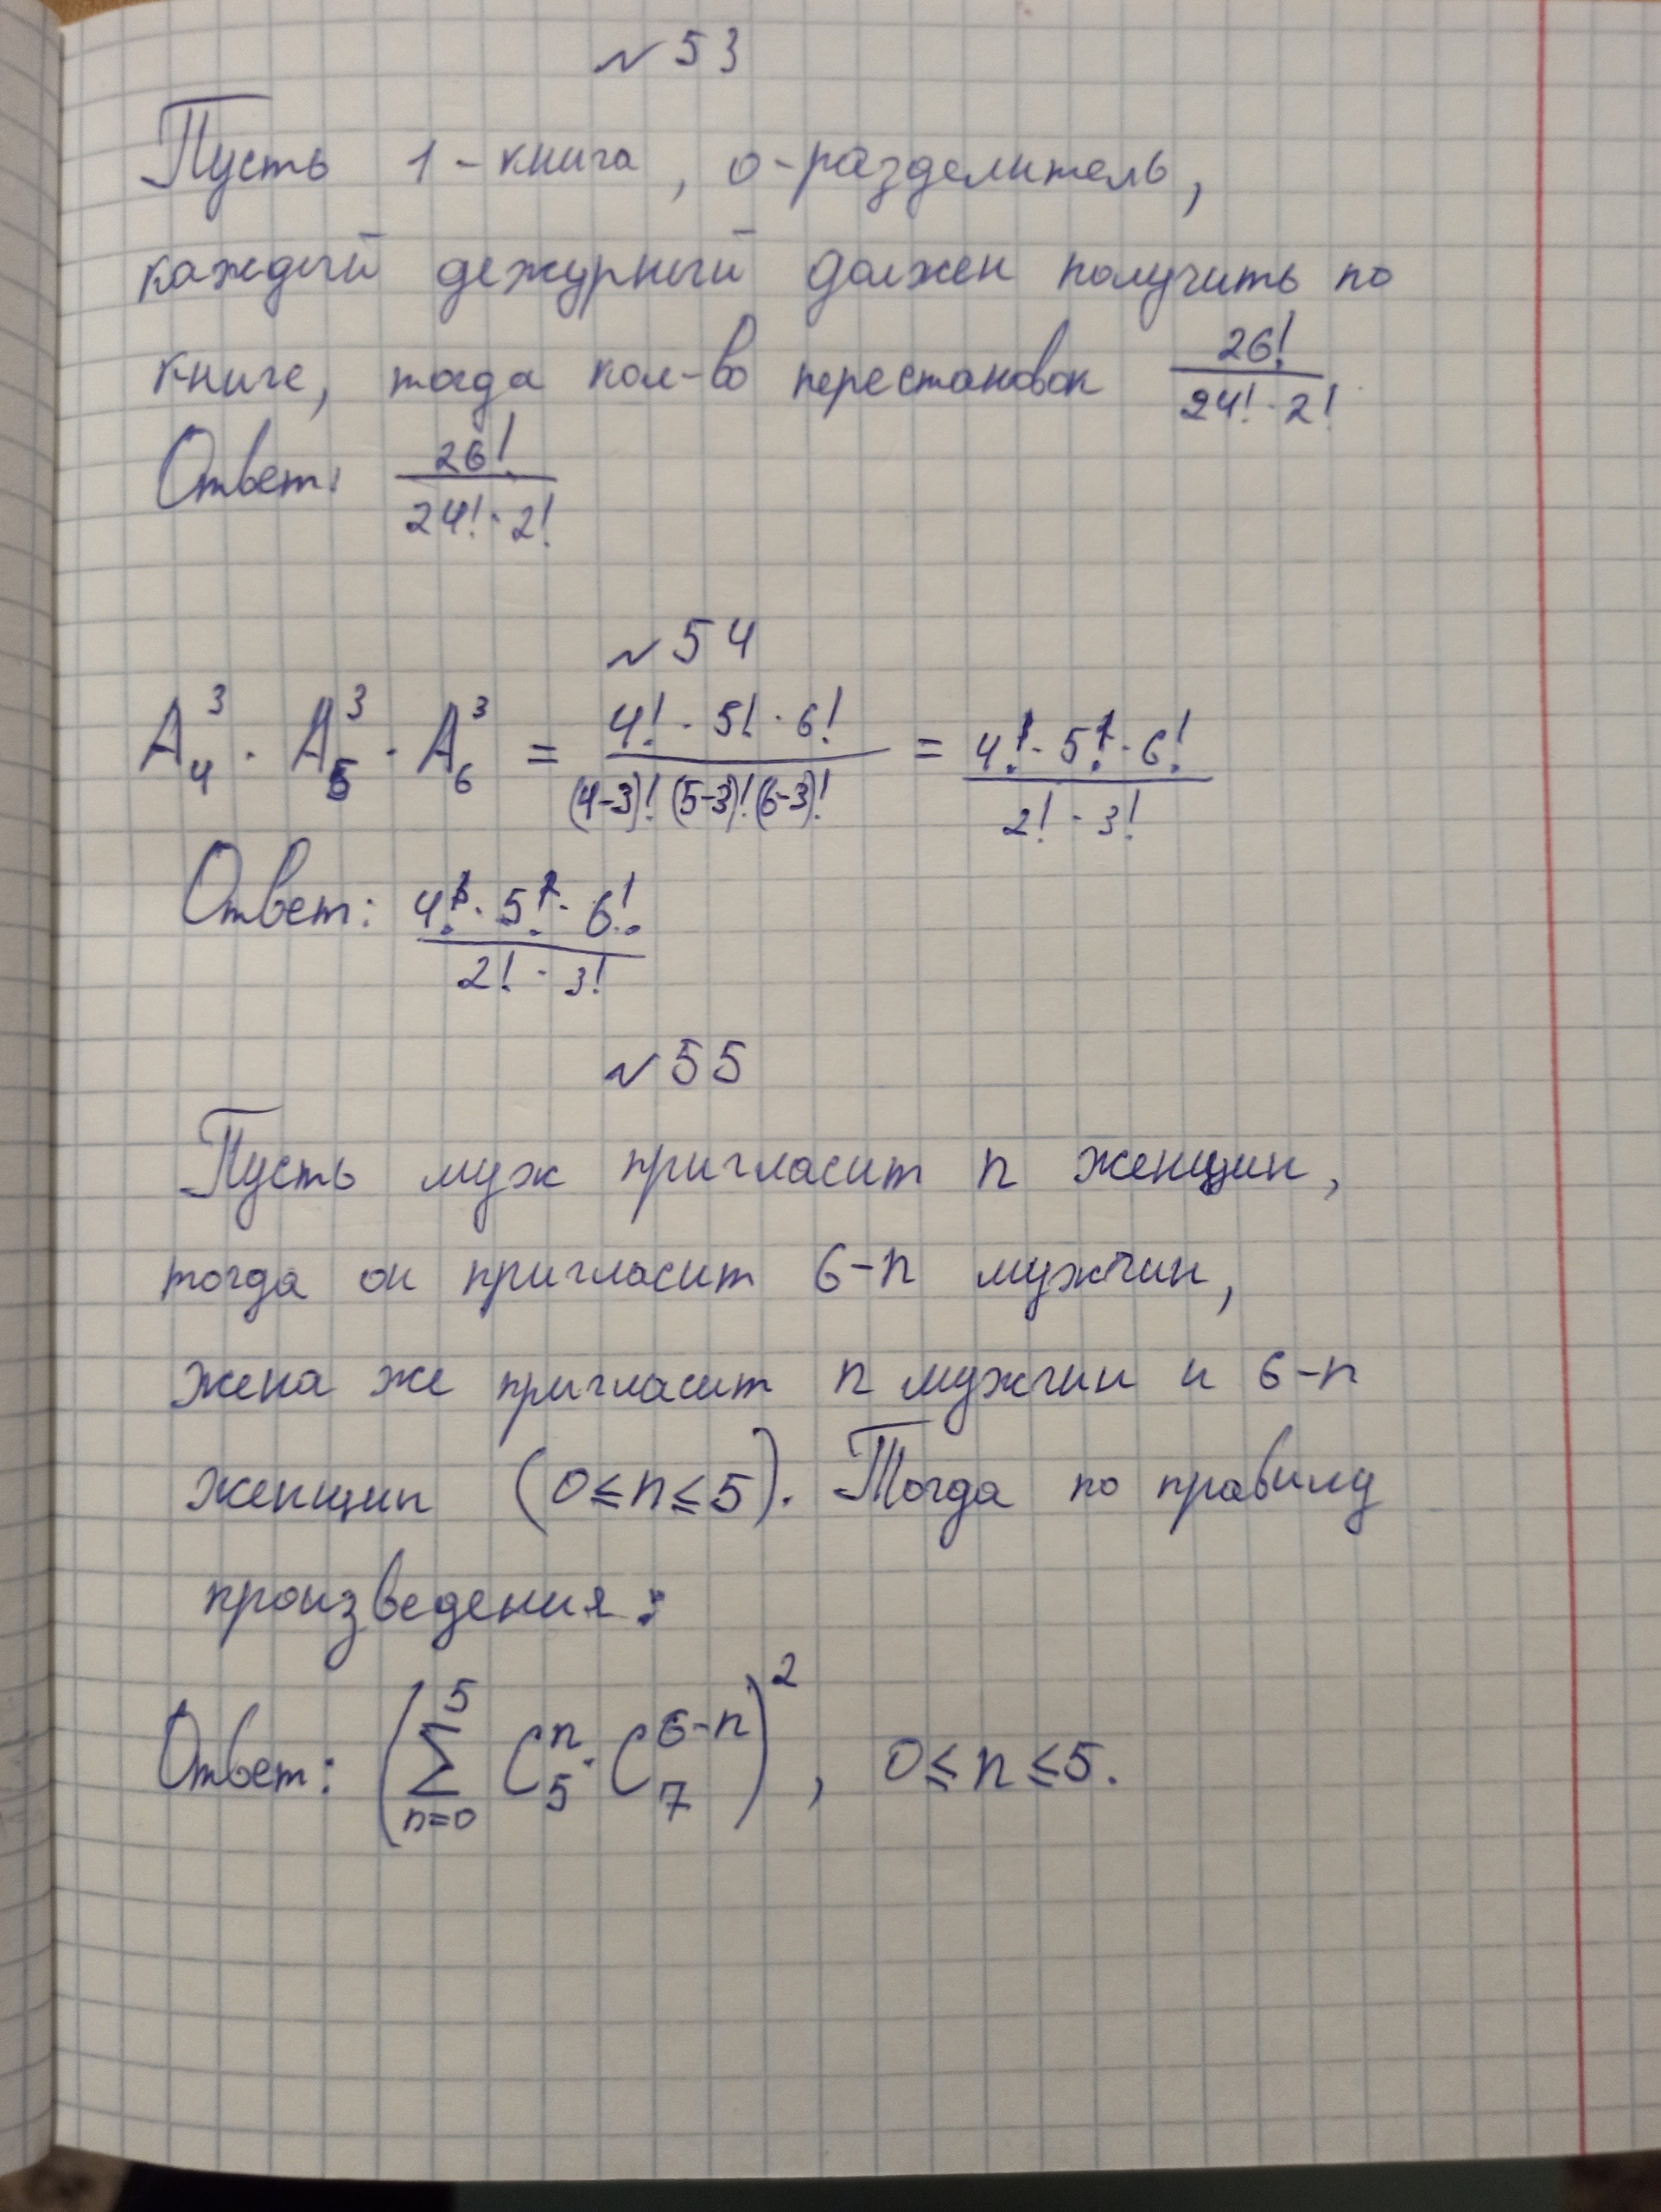 №53
Пусть 1 - книга, 0 - разделитель,
каждый дежурный должен получить по
книге, тогда кол-во перестановок 26! / (24! · 2!)
Ответ: 26! / (24! · 2!)
№54
A₄³ · A₅³ · A₆³ = (4! · 5! · 6!) / ((4-3)! (5-3)! (6-3)!) = (4! · 5! · 6!) / (2! · 3!)
Ответ: (4! · 5! · 6!) / (2! · 3!)
№55
Пусть муж пригласит n женщин,
тогда он пригласит 6-n мужчин,
жена же пригласит n мужчин и 6-n
женщин (0≤n≤5). Тогда по правилу
произведения:
Ответ: (∑ₙ₌₀⁵ C₅ⁿ · C₇⁶⁻ⁿ)², 0≤n≤5.